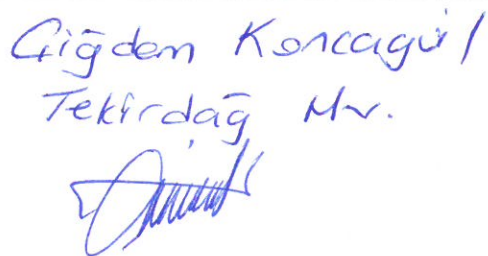 Çiğdem Koncagül
Tekirdağ Mv.